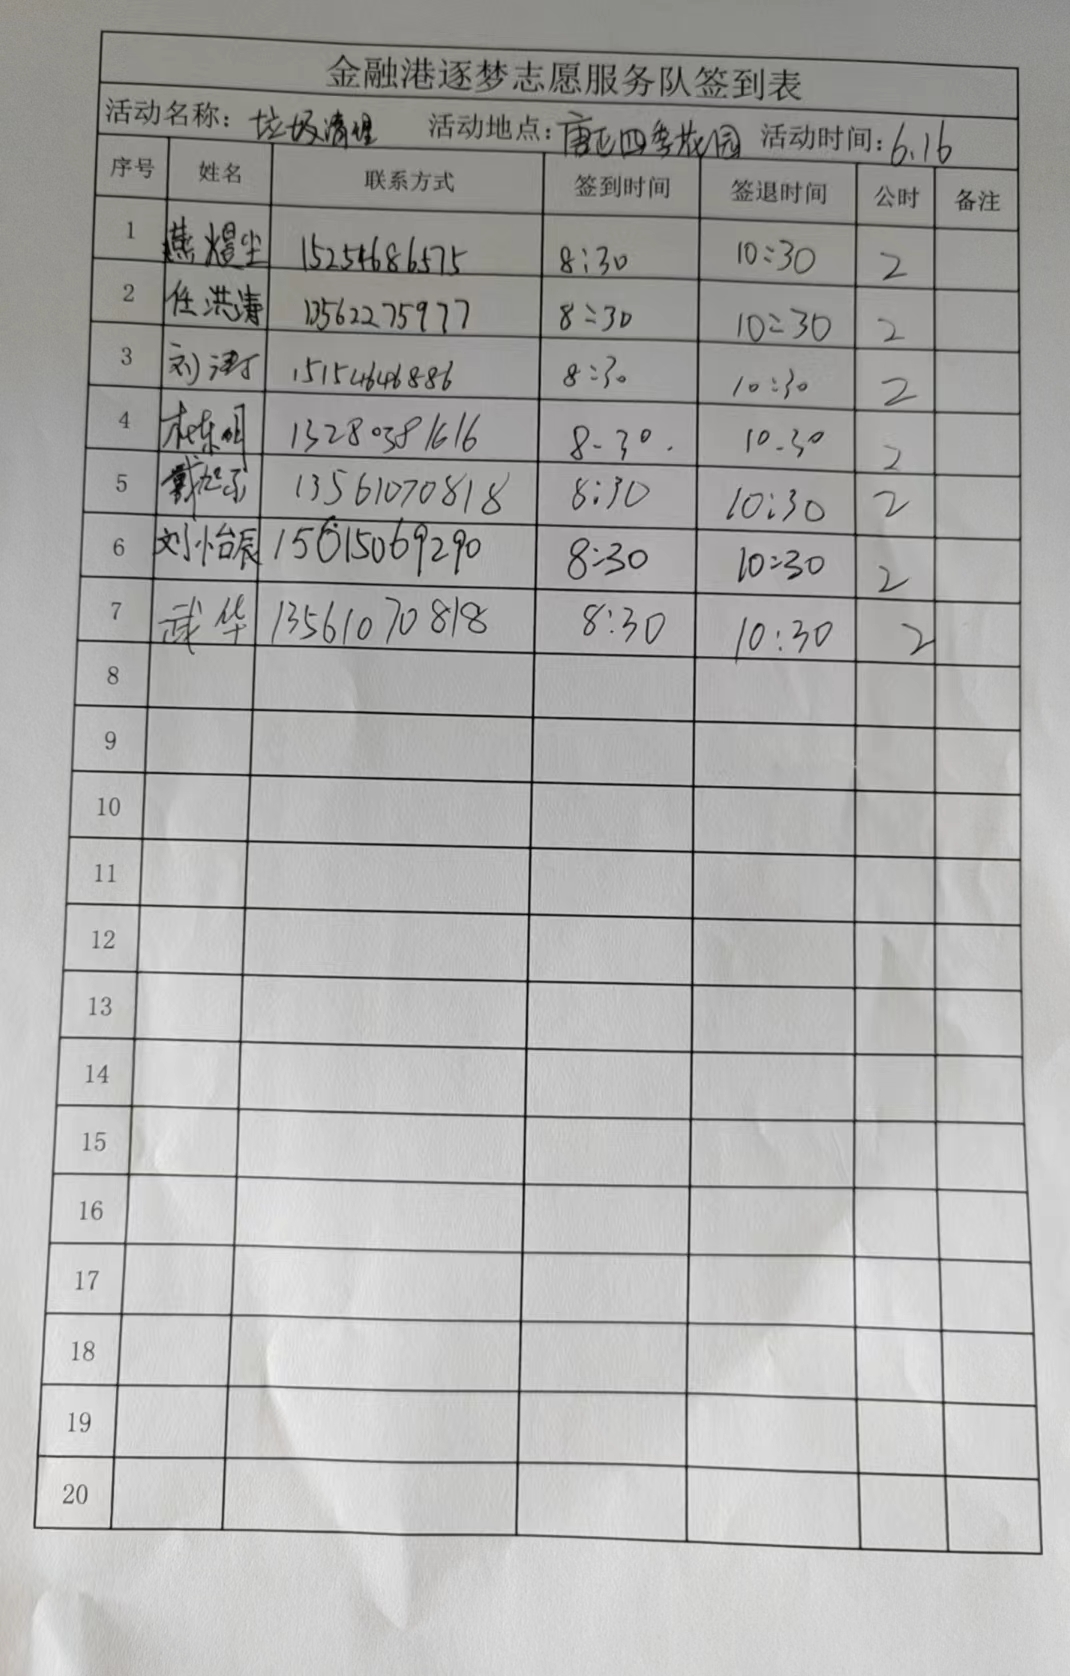 金融港逐梦志愿服务队签到表
活动名称：垃圾清理 活动地点：唐正四季花园 活动时间：6.16
序号 姓名 联系方式 签到时间 签退时间 公时 备注
1 燕煜尘 15254686575 8:30 10:30 2
2 任洪涛 13562275977 8:30 10:30 2
3 刘 15154646886 8:30 10:30 2
4 杜东明 13280381616 8-30. 10-30 2
5 戴 13561070818 8:30 10:30 2
6 刘怡辰 15615069290 8:30 10:30 2
7 武华 13561070818 8:30 10:30 2
8
9
10
11
12
13
14
15
16
17
18
19
20